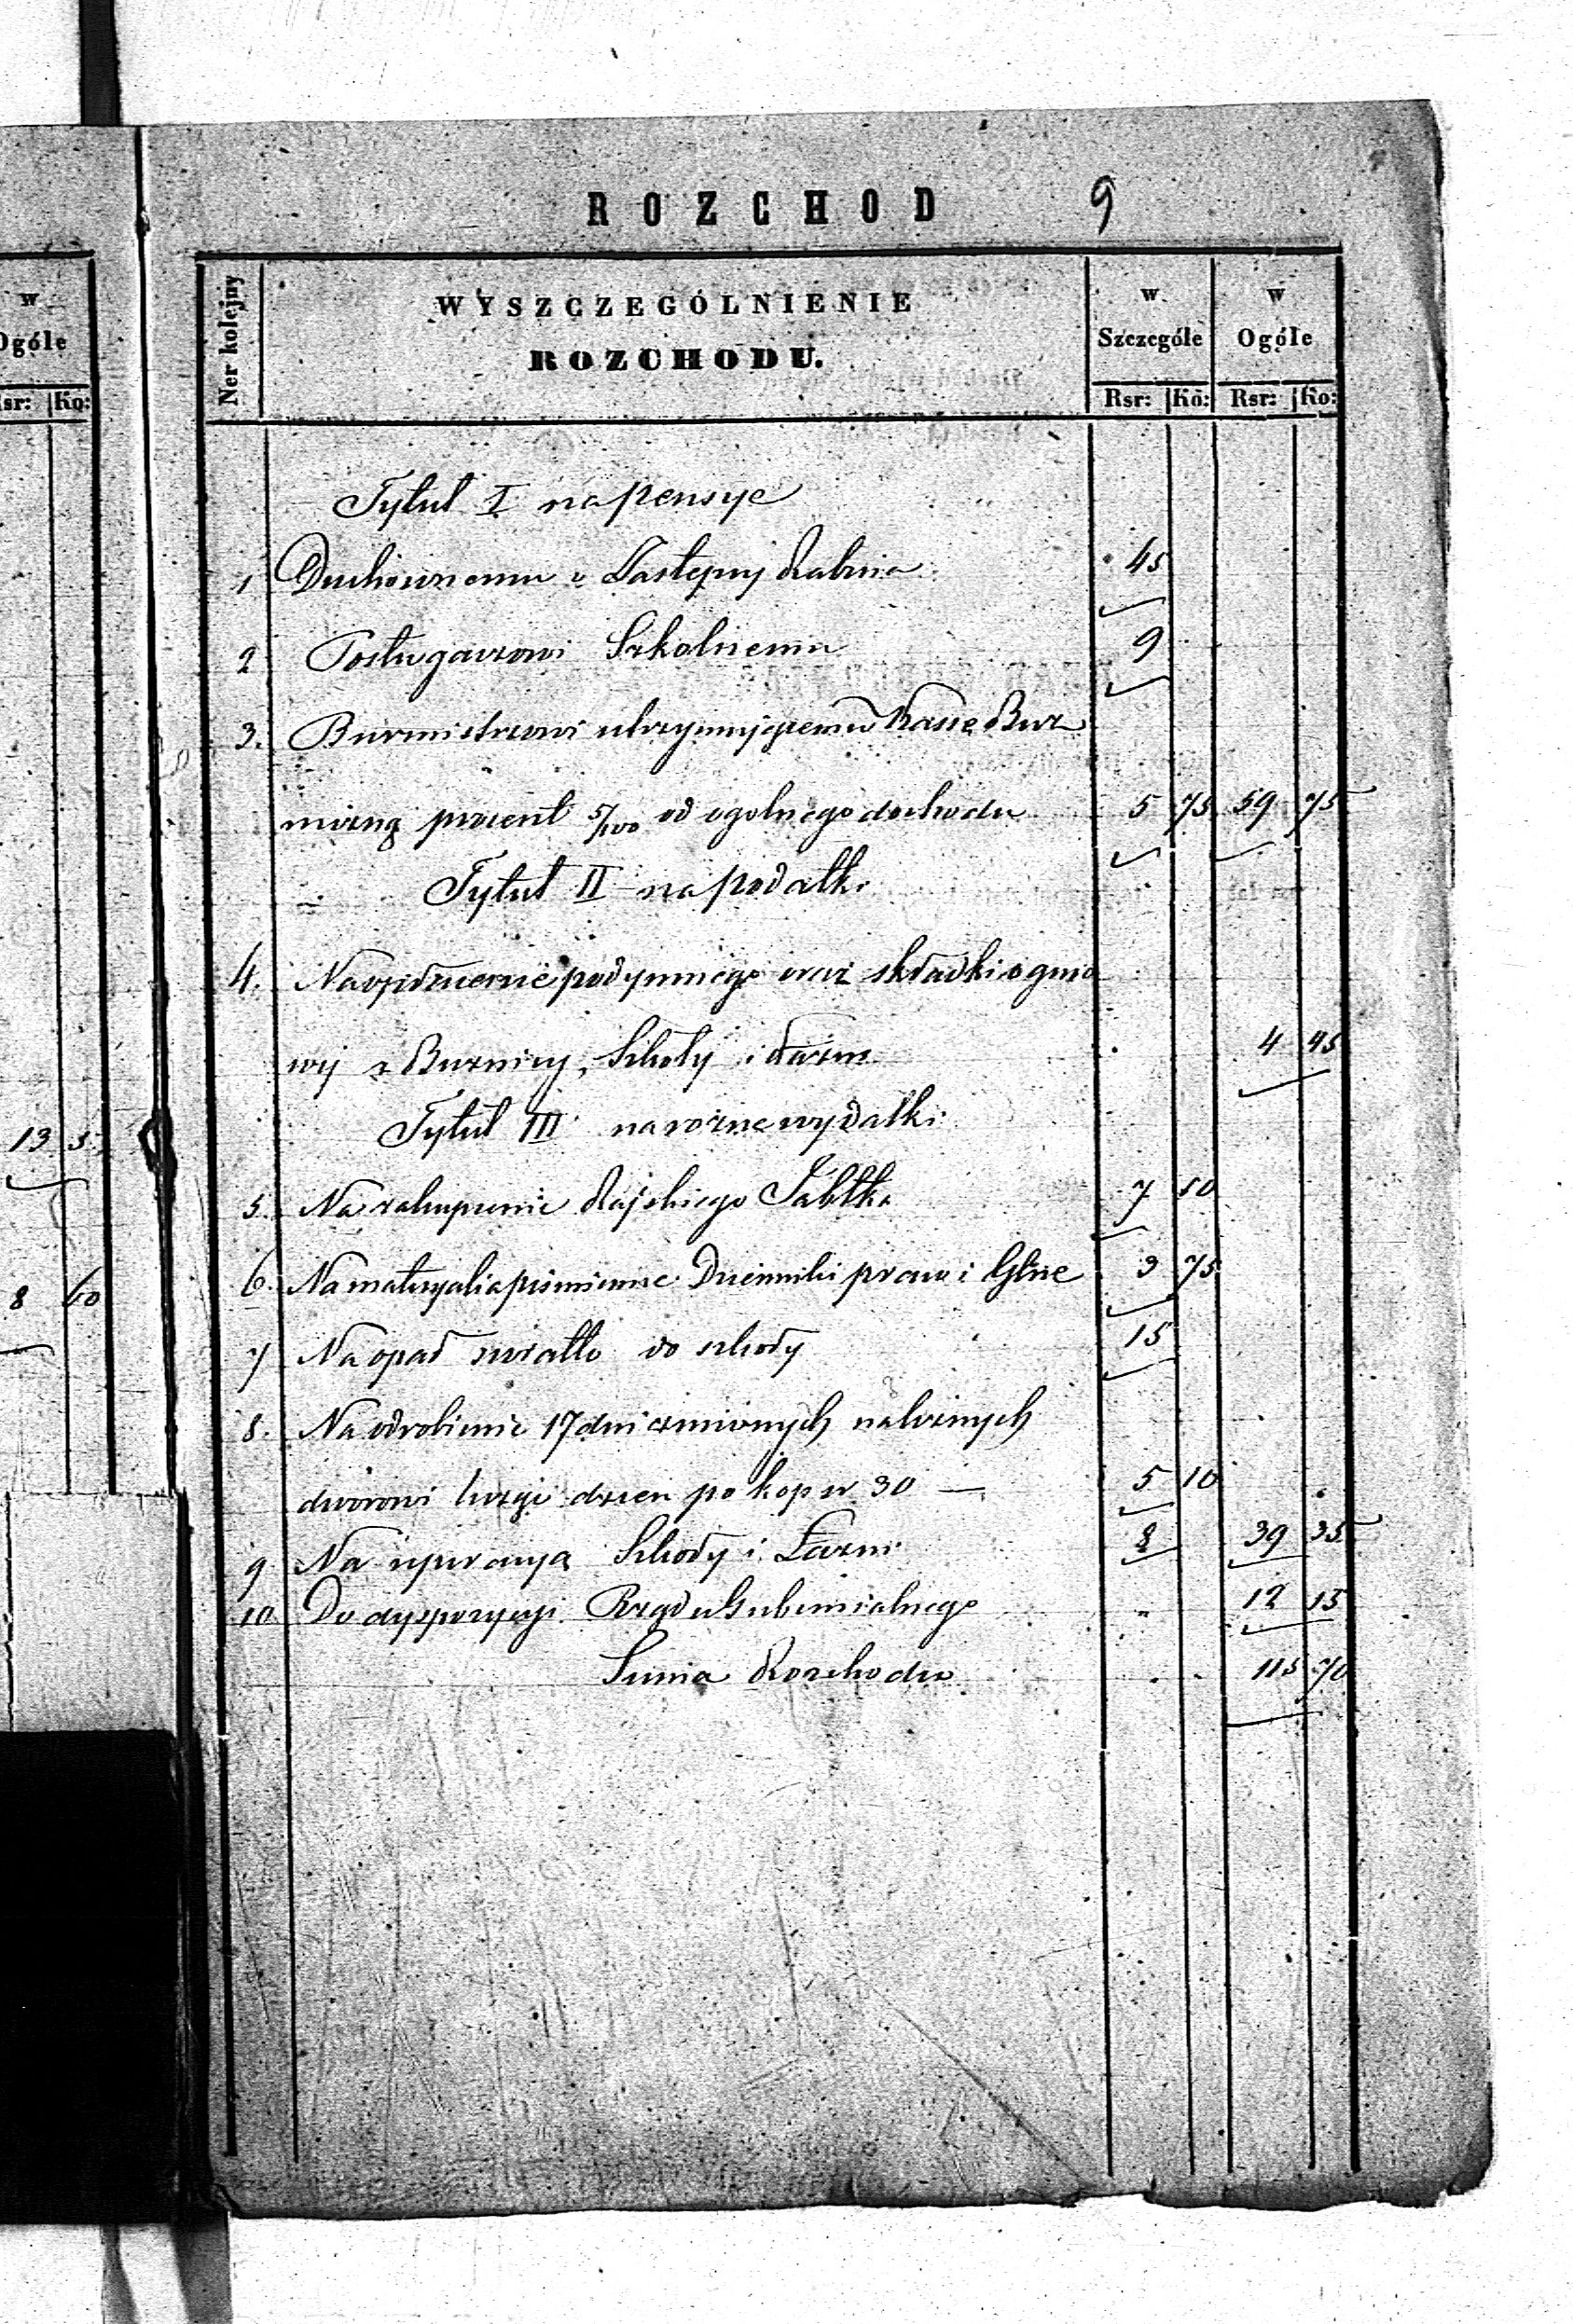 ROZCHOD 9
w
Ogóle
sr: Ko:
13 5
8 60
Ner kolejny
WYSZCZEGÓLNIENIE
ROZCHODU.
w Szczególe
w Ogóle
Rsr: Ko: Rsr: Ko:
Tytuł I na pensye
1 Duchownemu v Zastępcy Rabina 45
2 Posługaczowi Szkolnemu 9
3. Burmistrzowi utrzymującemu Kassę Buż
niczną procent 5/100 od ogolnego dochodu 5 75 59 75
Tytuł II na podatki
4. Na opłacenie podymnego oraz składki ognio
wej z Buznicy, Szkoły i Łazni 4 45
Tytuł III na rożne wydatki
5. Na zakupienie Rajskiego Jabłka 7 50
6. Na materyalia piśmienne Dzienniki praw i 3 75
7 Na opał swiatło do szkoły 15
8. Na odrobienie 17 dni należnych
dworowi licząc dzien po kop sr 30 — 5 10
9 Na reperacyą Szkoły i Łazni 8 39 35
10 Do dyspozycyi Rządu Gubernialnego " 12 15
Suma Rozchodu 115 70